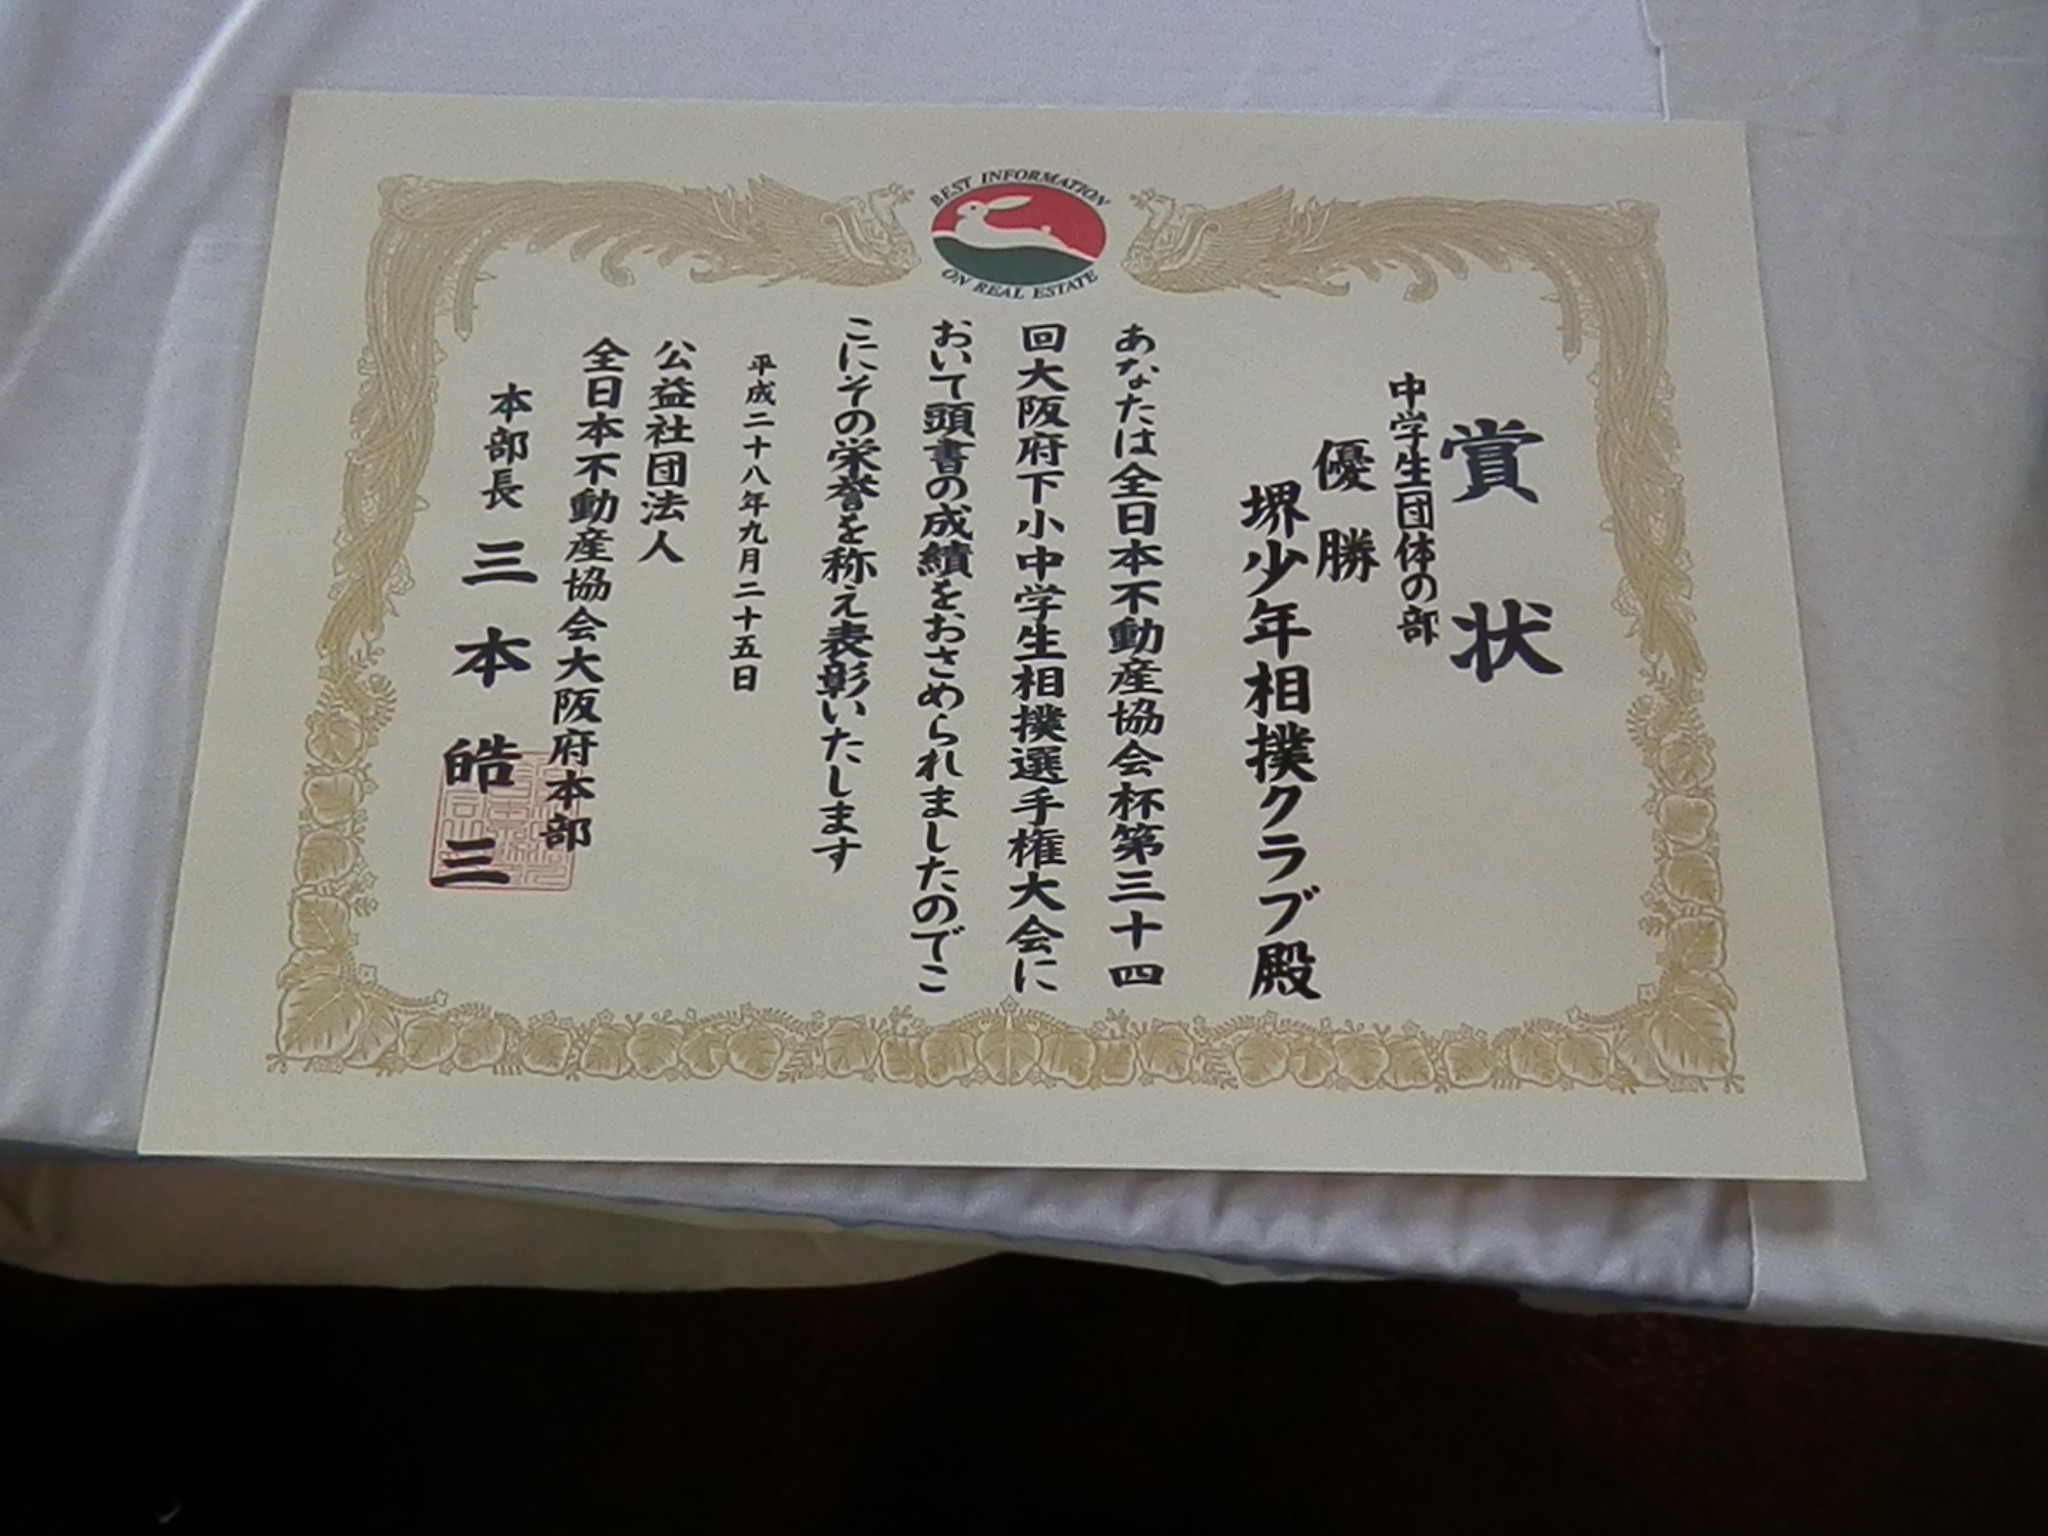 BEST INFORMATION
ON REAL ESTATE
賞状
中学生団体の部
優勝
堺少年相撲クラブ殿
あなたは全日本不動産協会杯第三十四
回大阪府下小中学生相撲選手権大会に
おいて頭書の成績をおさめられましたのでこ
こにその栄誉を称え表彰いたします
平成二十八年九月二十五日
公益社団法人
全日本不動産協会大阪府本部
本部長 三本皓三